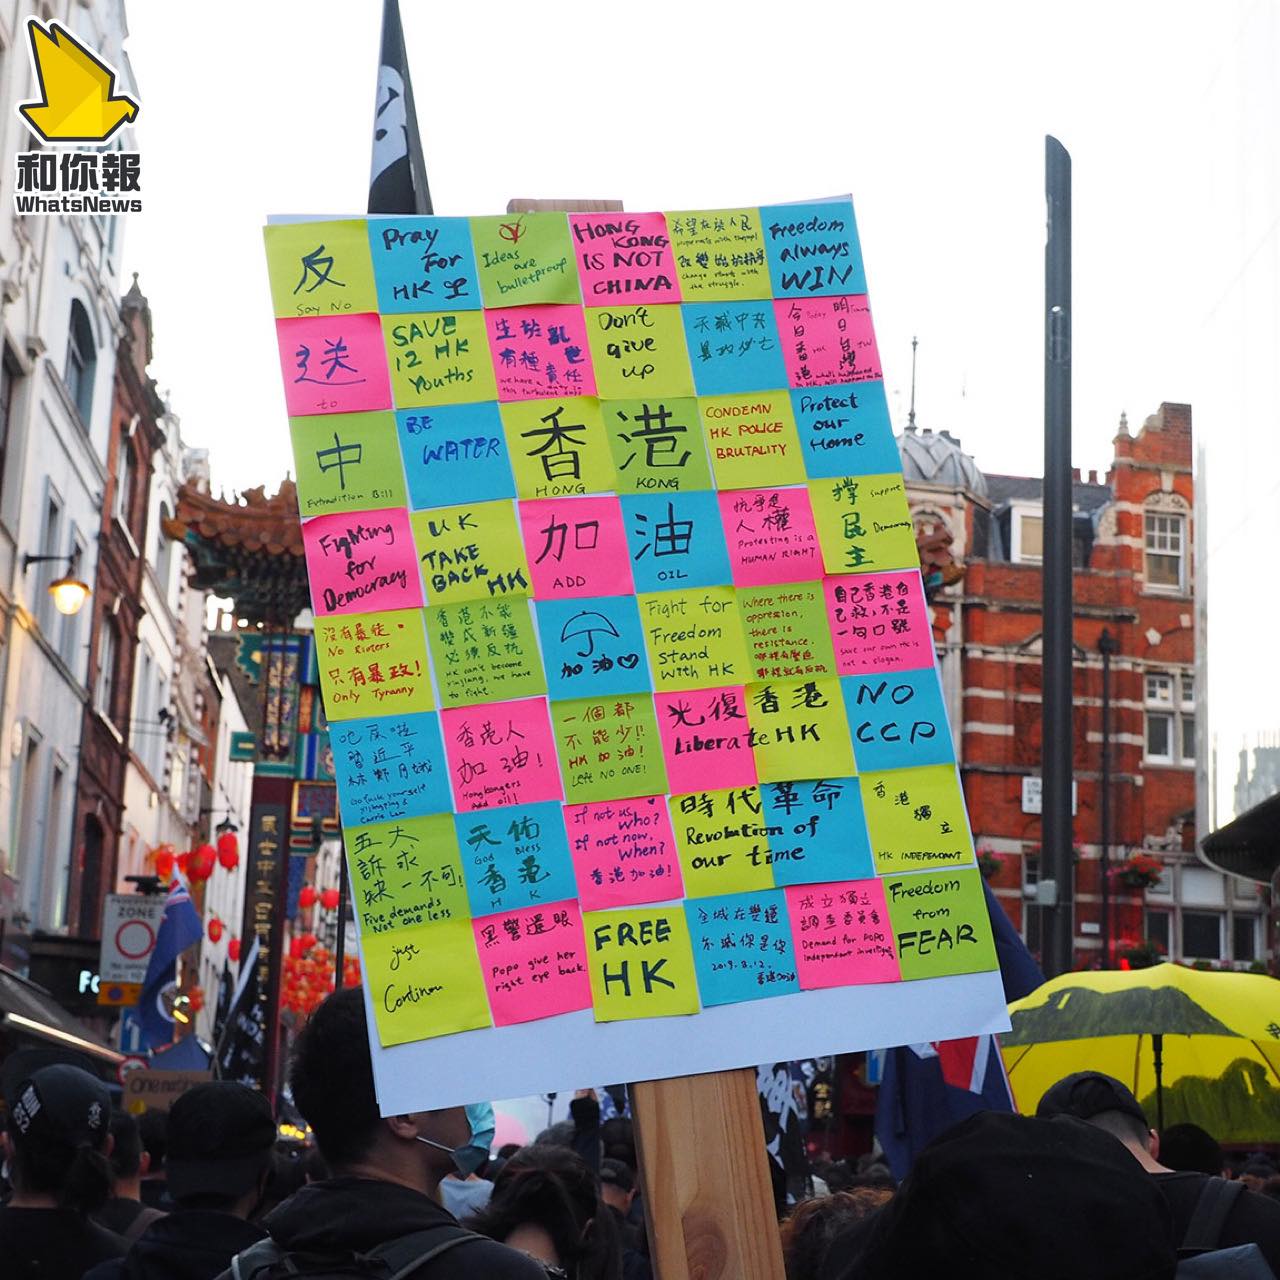 和你報
WhatsNews
反
Say No
Pray
For
HK
Ideas
are
bulletproof
HONG
KONG
IS NOT
CHINA
希望在於人民
改變始於抗爭
change starts with
the struggle.
Freedom
always
WIN
送
to
SAVE
12 HK
Youths
生於亂世
有種責任
we have a duty in
Don't
give
up
天滅中共
今日香港
Today HK
明日台灣
TW
中
Extradition Bill
BE
WATER
香
HONG
港
KONG
CONDEMN
HK POLICE
BRUTALITY
Protect
our
Home
Fighting
for
Democracy
UK
TAKE
BACK HK
加
ADD
油
OIL
抗爭是
人權
Protesting is a
HUMAN RIGHT
撐
民
主
Support
Democracy
沒有暴徒
No Rioters
只有暴政!
Only Tyranny
香港不能
變成新疆
必須反抗
HK can't become
Xinjiang, we have
to fight.
加油
Fight for
Freedom
Stand
with HK
Where there is
oppression,
there is
resistance.
哪裡有壓迫
哪裡就有反抗
自己香港自
己救,不是
一句口號
save our own HK is
not a slogan.
習近平
林鄭月娥
Go fuck yourself
Xi Jingping &
Carrie Lam
香港人
加油!
Hongkongers
Add oil!
一個都
不能少!!
HK 加油!
Left NO ONE!
光復香港
Liberate HK
NO
CCP
五大
訴求
缺一不可!
Five demands
Not one less
天佑
God Bless
香港
H K
If not us,
Who?
If not now,
When?
香港加油!
時代革命
Revolution of
our time
香
港
獨
立
HK INDEPENDANT
just
Continue
黑警還眼
Popo give her
right eye back.
FREE
HK
2019.8.12.
成立獨立
調查委員會
Demand for POPO
independent investig
Freedom
from
FEAR
ZONE